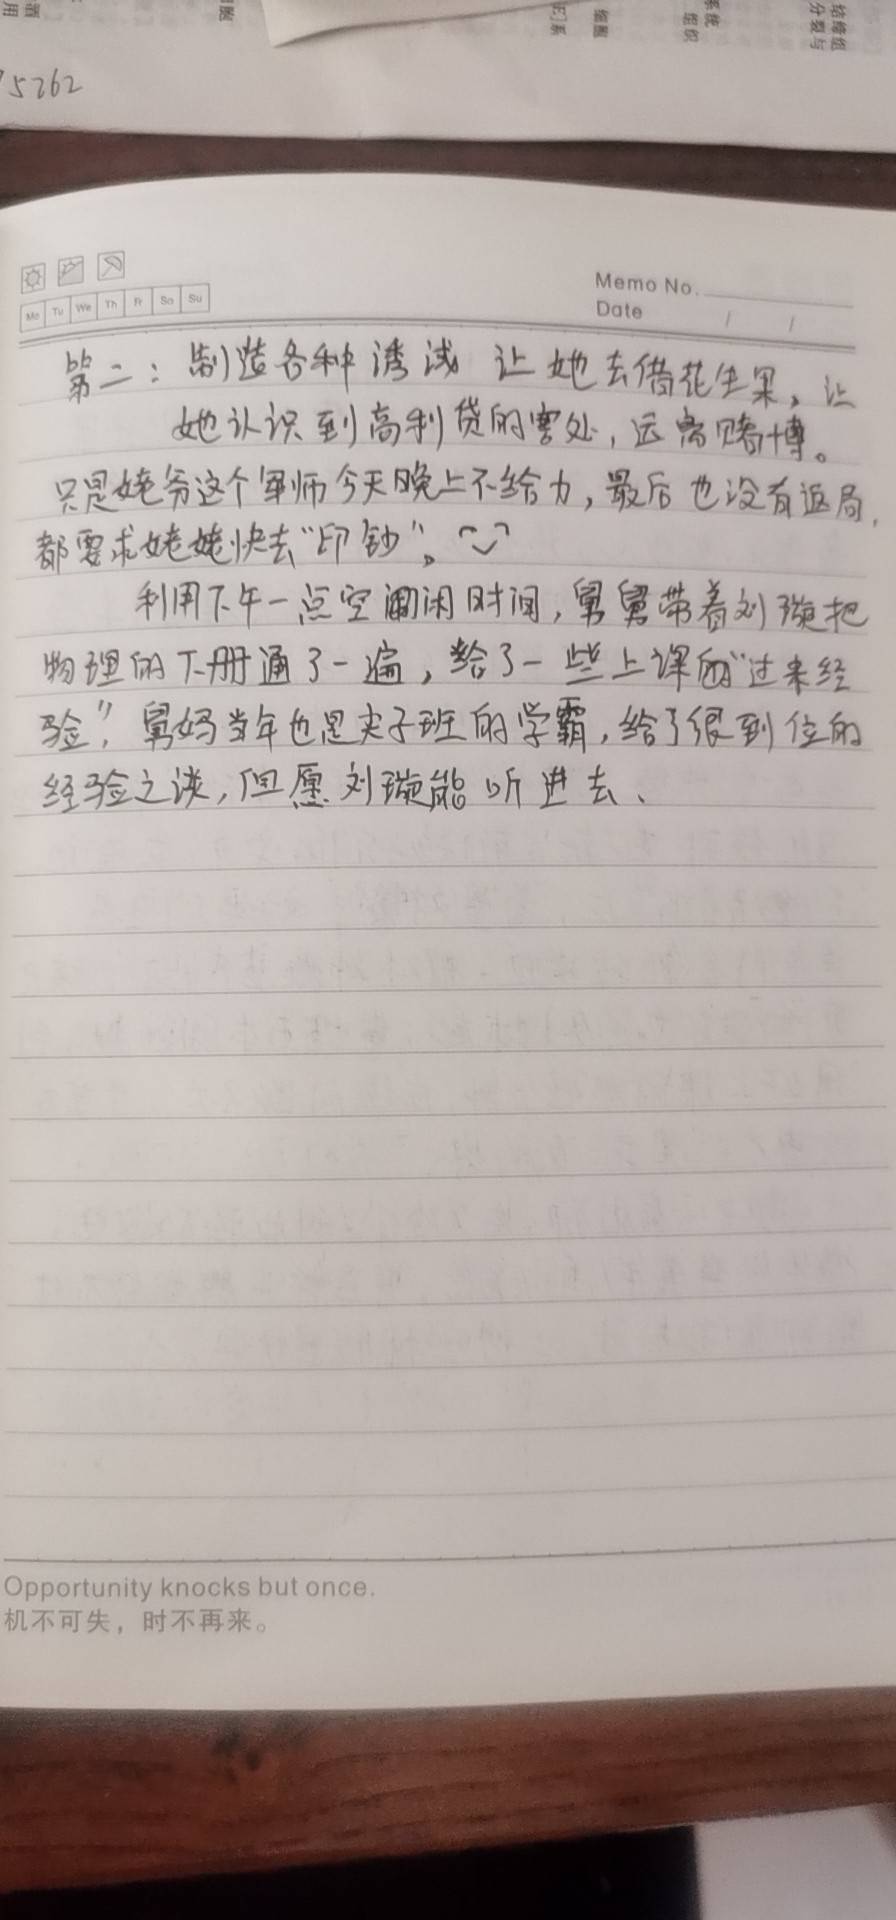 结缔组
分裂与
系统
组织
细胞
的]系
胞
用
5262
Memo No.
Date / /
Mo Tu We Th Fr Sa Su
第二：制造各种诱惑 让她去借花生果，让
她认识到高利贷的害处，远离赌博。
只是姥爷这个军师今天晚上不给力，最后也没有返局，
都要求姥姥快去“印钞”。
利用下午一点空闲时间，舅舅带着刘璇把
物理的下册通了一遍，给了一些上课的“过来经
验”，舅妈当年也是尖子班的学霸，给了很到位的
经验之谈，但愿刘璇能听进去、
Opportunity knocks but once.
机不可失，时不再来。